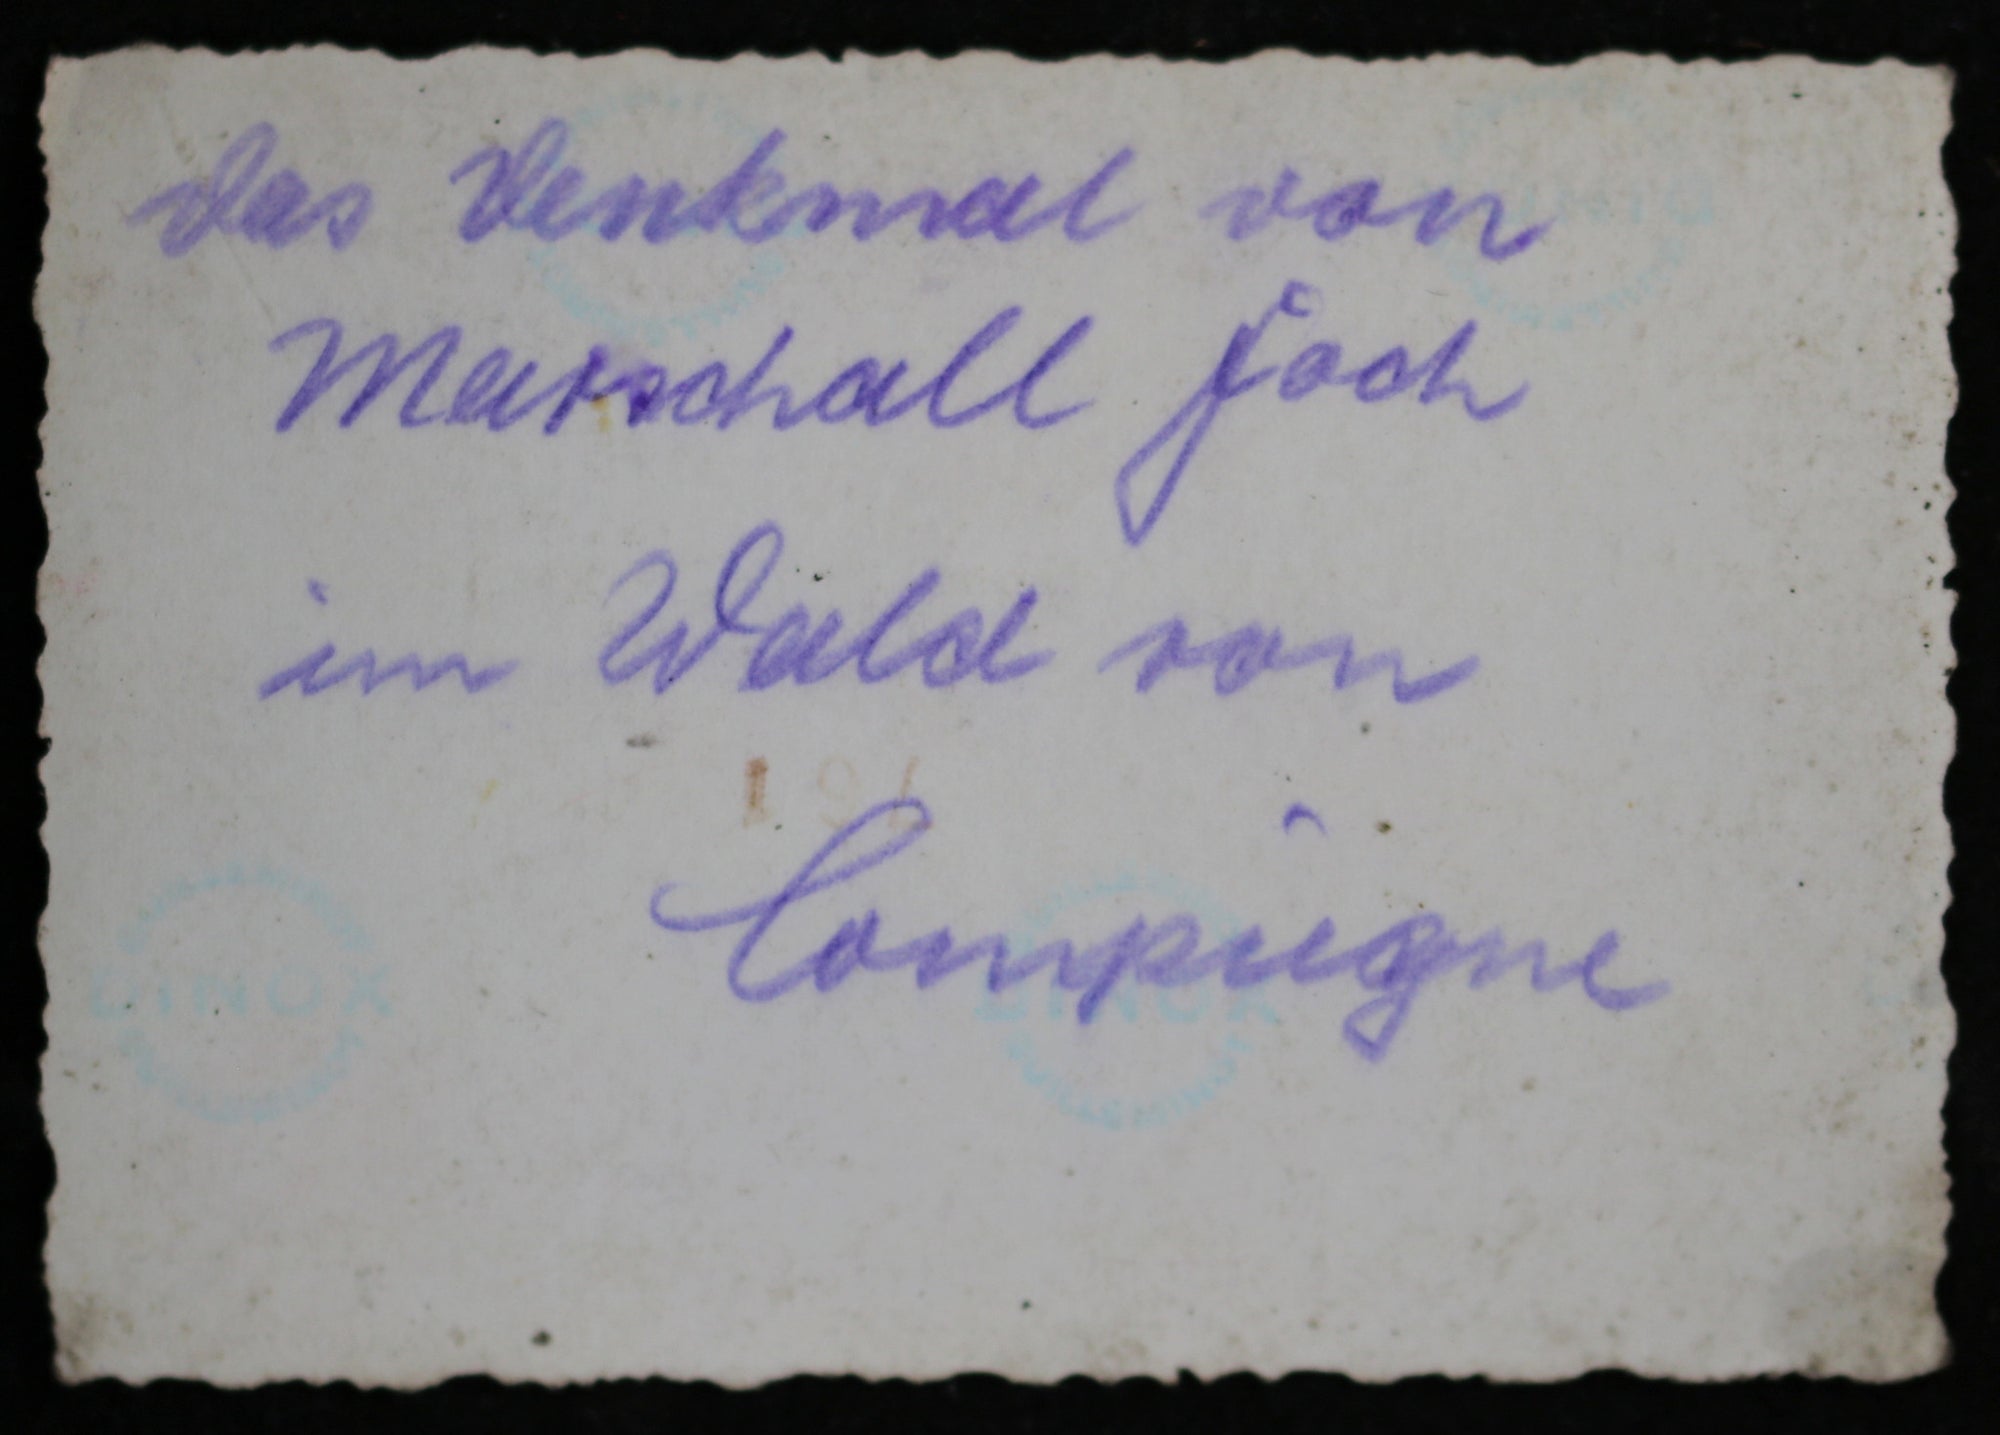 das Denkmal von
Marschall Foch
im Wald von
Compiegne
DINOX
DINOX